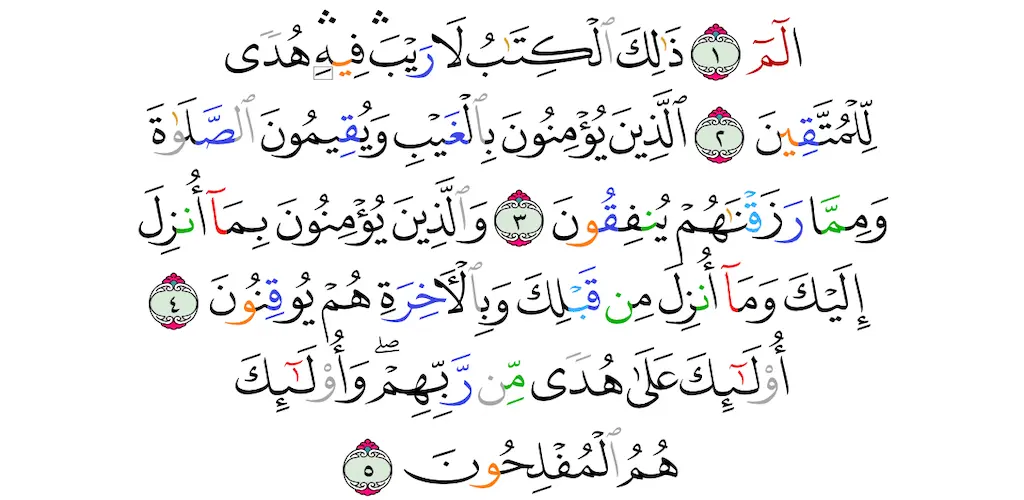 الٓمٓ ١ ذَٰلِكَ ٱلْكِتَـٰبُ لَا رَيْبَ ۛ فِيهِ ۛ هُدًى
لِّلْمُتَّقِينَ ٢ ٱلَّذِينَ يُؤْمِنُونَ بِٱلْغَيْبِ وَيُقِيمُونَ ٱلصَّلَوٰةَ
وَمِمَّا رَزَقْنَـٰهُمْ يُنفِقُونَ ٣ وَٱلَّذِينَ يُؤْمِنُونَ بِمَآ أُنزِلَ
إِلَيْكَ وَمَآ أُنزِلَ مِن قَبْلِكَ وَبِٱلْـَٔاخِرَةِ هُمْ يُوقِنُونَ ٤
أُو۟لَـٰٓئِكَ عَلَىٰ هُدًى مِّن رَّبِّهِمْ ۖ وَأُو۟لَـٰٓئِكَ
هُمُ ٱلْمُفْلِحُونَ ٥